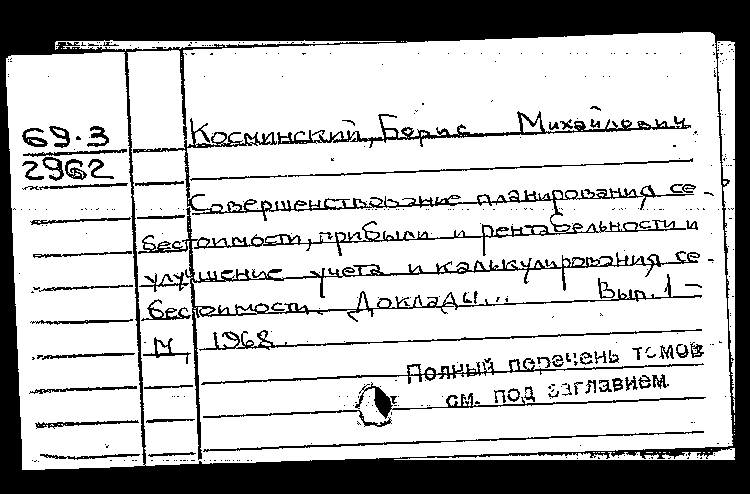 69.3
2962
Косминский, Борис Михайлович
Совершенствование планирования се-
бестоимости, прибыли и рентабельности и
улучшение учета и калькулирования се-
бестоимости. Доклады... Вып. 1 -
М, 1968.
Полный перечень томов
см. под заглавием